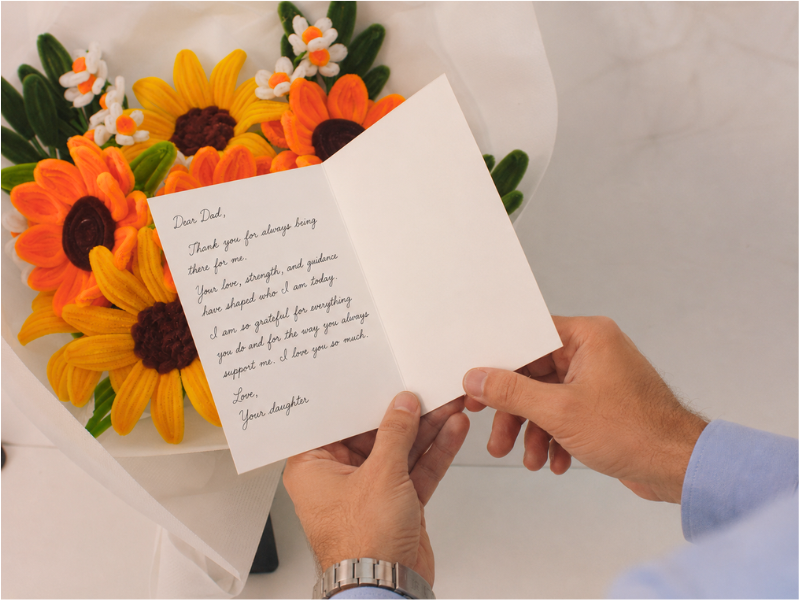 Dear Dad,
Thank you for always being
there for me.
Your love, strength, and guidance
have shaped who I am today.
I am so grateful for everything
you do and for the way you always
support me. I love you so much.
Love,
Your daughter